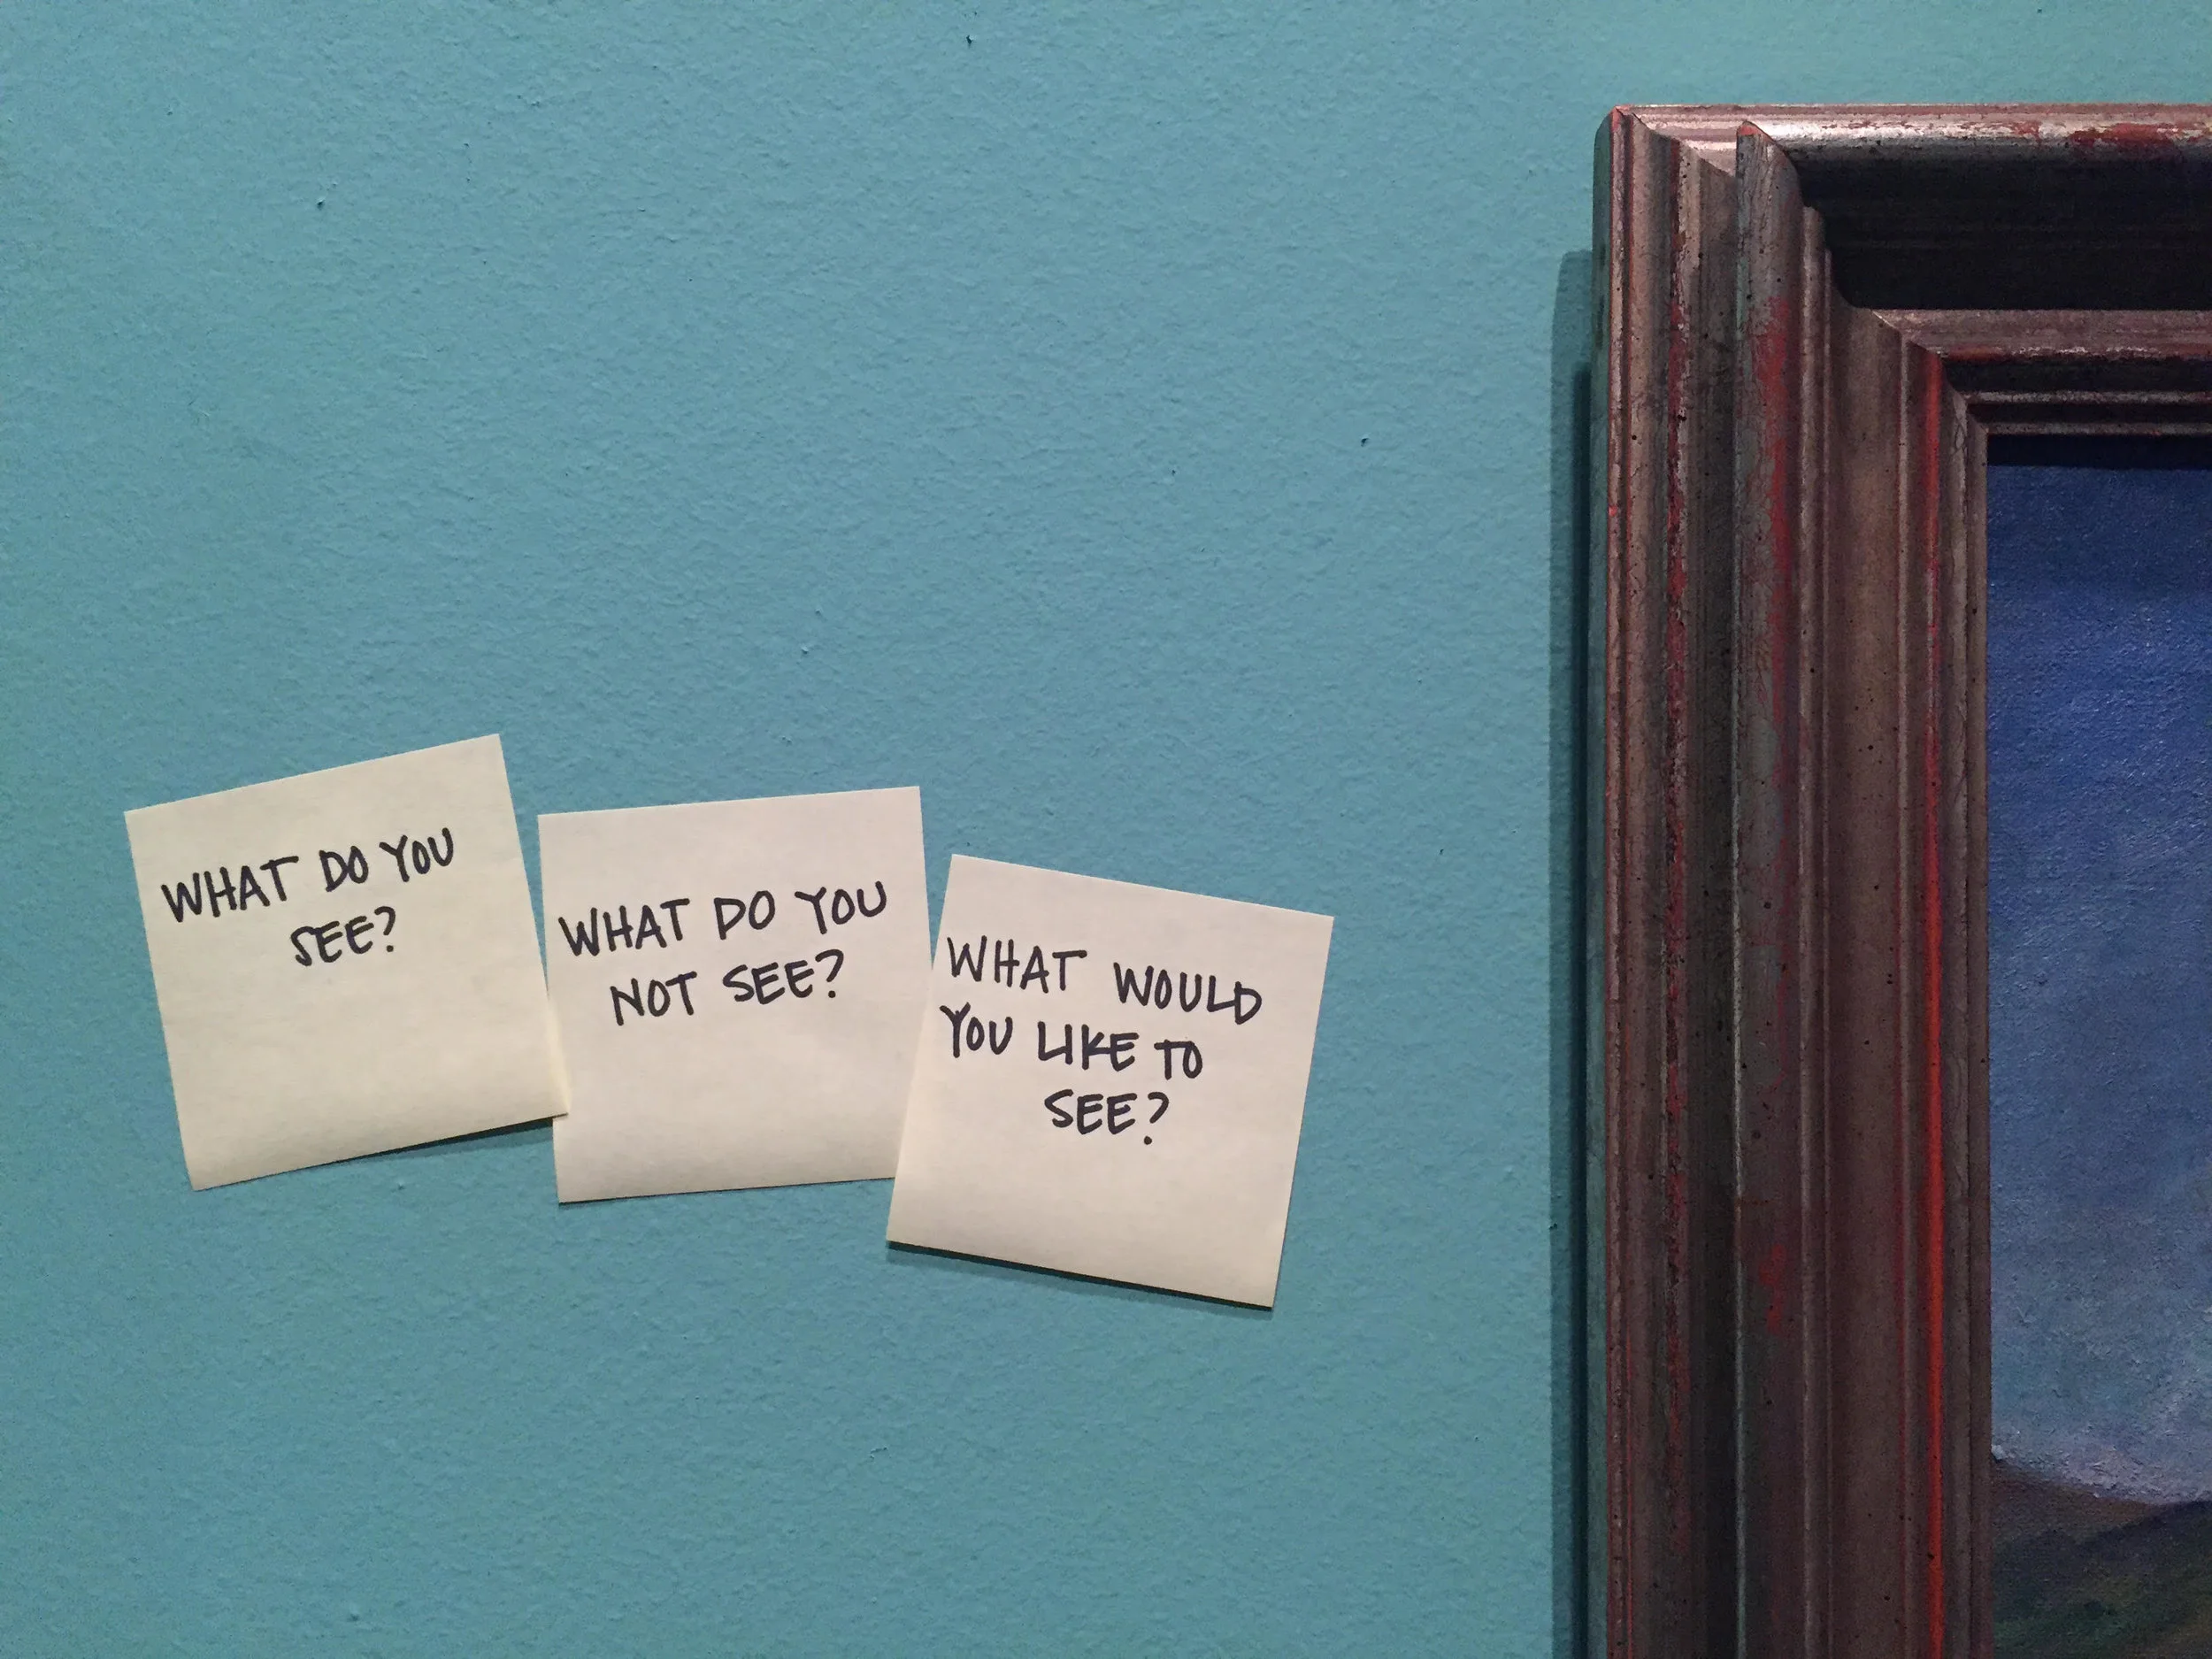 WHAT DO YOU
SEE?
WHAT DO YOU
NOT SEE?
WHAT WOULD
YOU LIKE TO
SEE?